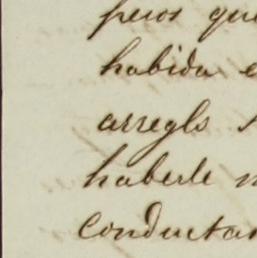 pesos que
habida e
arreglo
haberle n
conductas